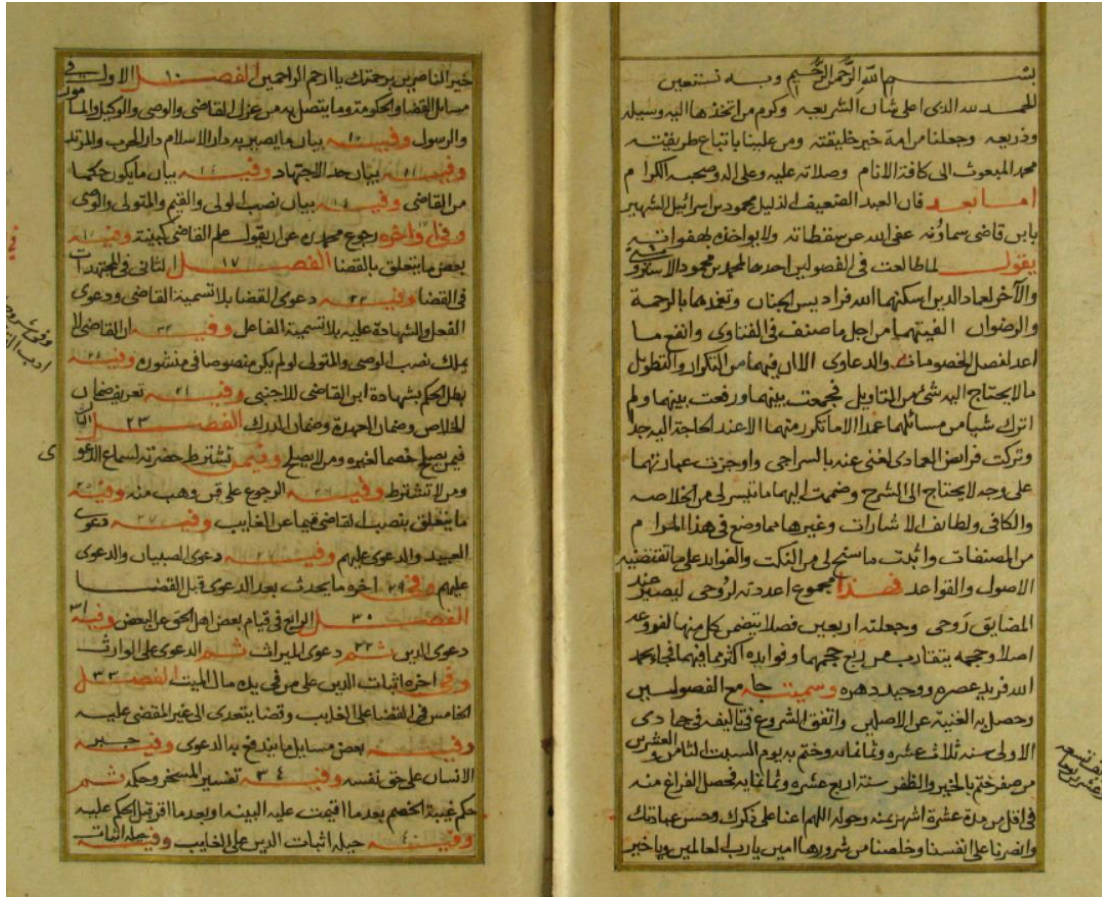 بسم الله الرحمن الرحيم وبه نستعين
الحمد لله الذى اعلى شان الشريعه وكرم من اتخذها اليه وسيله
وذريعه وجعلنا من امة خير خليقته ومن علينا باتباع طريقته
محمد المبعوث الى كافة الانام وصلاته عليه وعلى اله وصحبه الكرام
اما بعد فان العبد الضعيف الذليل محمود بن اسرائيل الشهير
بابن قاضى سماونه عفى الله عن سقطاته ولا يواخذه بهفواته
يقول لما طالعت فى الفصولين احدهما لمحمد بن محمود الاستروشنى
والآخر لعماد الدين اسكنهما الله فراديس الجنان وتغمدها بالرحمة
والرضوان الفيتهما من اجل ما صنف فى الفتاوى وانفع ما
اعد لفصل الخصومات والدعاوى الا ان فيهما من التكرار والتطويل
مالا يحتاج اليه شئ من التاويل فجمعت بينهما ورفعت بينهما ولم
اترك شيا من مسائلهما عمدا الا ما تكرر منهما الا عند الحاجة اليه جدا
وتركت فرايض العمادى لغنى عنه بالسراجى واوجزت عبارتهما
على وجه لا يحتاج الى الشرح وضممت اليهما ما تيسر لى من الخلاصه
والكافى ولطايف الاشارات وغيرها مما وضع فى هذا المرام
من المصنفات واثبت ما سنح لى من النكت والفوايد على ما تقتضيه
الاصول والقواعد فهذا مجموع اعددته لروحى ليصير عند
المضايق روحى وجعلته اربعين فصلا يتضمن كل منها لفوعد
اصلا وحجمه يتقارب من ربع حجمهما وفوايده اكثر مما فيهما فجاء بحمد
الله فريد عصره ووحيد دهره وسميته جامع الفصولين
وحصل به الغنية عن الاصلين واتفق الشروع فى تاليفه فى جمادى
الاولى سنه ثلاث عشره وثمانمانه وختم به يوم السبت الثامن والعشرين
من صفر ختم بالخير والظفر سنة اربع عشره وثمانمايه فحصل الفراغ منه
فى اقل من مدة عشرة اشهر بمنه وحوله اللهم اعنا على ذكرك وحسن عبادتك
وانصرنا على انفسنا وخلصنا من شرورها امين يا رب العالمين ويا خير
خير الناصرين برحمتك يا ارحم الراحمين الفصل ١٠ الاول فى
مسائل القضا والحكومة وما يتصل به من عزل القاضى والوصى والوكيل والمامور
والرسول وفيه ١٠ بيان ما يصير به دار الاسلام دار الحرب والمرتد
وفيه ١١ بيان حد الاجتهاد وفيه ١٤ بيان ما يكون حكما
من القاضى وفيه ١٤ بيان نصب الولى والقيم والمتولى والوصى
وفى اواخره رجوع محمد ره عن ان يقول علم القاضى كبينة وفيه
بعض ما يتعلق بالقضا الفصل ١٧ الثانى فى المجتهدات
فى القضا وفيه ٢٢ دعوى القضا بلا تسمية القاضى ودعوى
الفعل والشهادة عليه بلا تسمية الفاعل وفيه ٢٢ ان القاضى لا
يملك نصب الوصى والمتولى لو لم يكن منصوصا فى منشوره وفيه
بطل الحكم بشهادة ابن القاضى للاجنبى وفيه تعريف ضمان
الخلاص وضمان العهدة وضمان الدرك الفصل ٢٣ الثالث
فيمن يصلح خصما لغيره ومن لا يصلح وفيمن تشترط حضرته لسماع الدعوى
ومن لا تشترط وفيه ٢٦ الرجوع على قن وهب منه وفيه
ما يتعلق بنصب القاضى قيما عن الغايب وفيه ٢٧ دعوى
العبيد والدعوى عليهم وفيه ٢٧ دعوى الصبيان والدعوى
عليهم وفى ٢٩ اخره ما يحدث بعد الدعوى قبل القضا
الفصل ٣٠ الرابع فى قيام بعض اهل الحق عن البعض وفيه ٣١
دعوى الدين ثم ٣٢ دعوى الميراث ثم الدعوى على الوارث
وفى اخره اثبات الدين على من فى يده مال الميت الفصل ٣٣
الخامس فى القضا على الغايب وقضا يتعدى الى غير المقضى عليه
وفيه بعض مسايل ما يندفع به الدعوى وفيه جبر
الانسان على حق نفسه وفيه ٣٤ تفسير المسخر وحكمه ثم
حكم غيبة الخصم بعد ما اقيمت عليه البينه او بعد ما اقر قبل الحكم عليه
وفيه ٤٠ حيلة اثبات الدين على الغايب وفيه حيلة اثبات